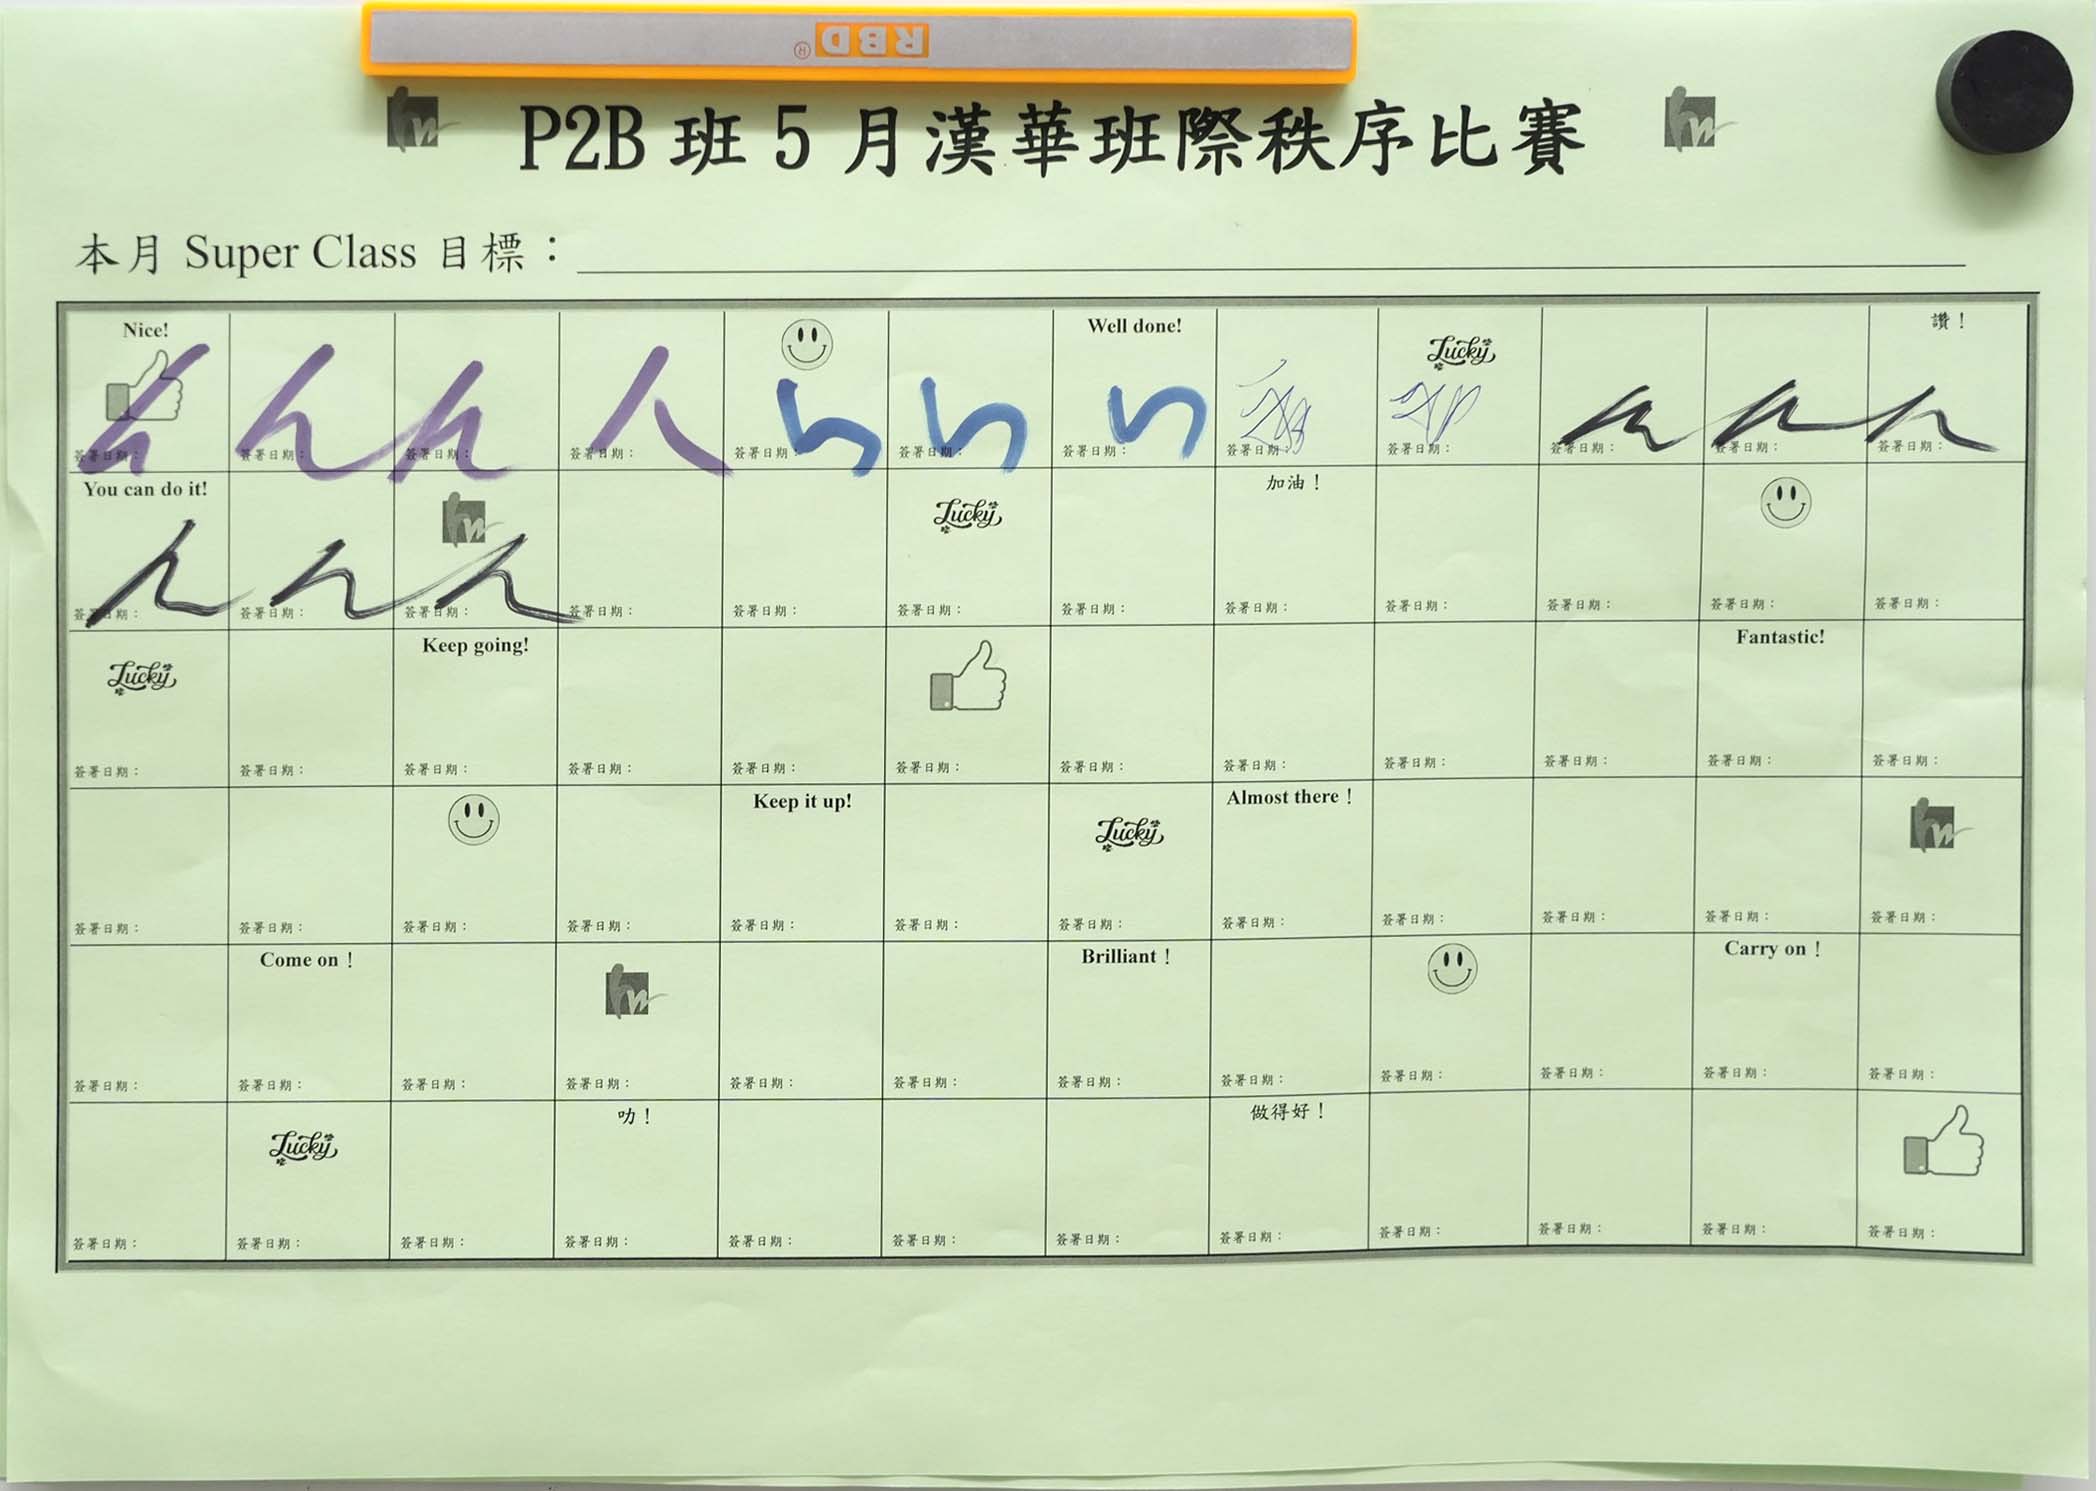 RBD®
P2B 班 5 月漢華班際秩序比賽
本月 Super Class 目標：
Nice! Well done! Lucky 讚！
簽署日期： 簽署日期： 簽署日期： 簽署日期： 簽署日期： 簽署日期： 簽署日期： 簽署日期： 簽署日期： 簽署日期： 簽署日期： 簽署日期：
You can do it! Lucky 加油！
簽署日期： 簽署日期： 簽署日期： 簽署日期： 簽署日期： 簽署日期： 簽署日期： 簽署日期： 簽署日期： 簽署日期： 簽署日期： 簽署日期：
Lucky Keep going! Fantastic!
簽署日期： 簽署日期： 簽署日期： 簽署日期： 簽署日期： 簽署日期： 簽署日期： 簽署日期： 簽署日期： 簽署日期： 簽署日期： 簽署日期：
Keep it up! Lucky Almost there！
簽署日期： 簽署日期： 簽署日期： 簽署日期： 簽署日期： 簽署日期： 簽署日期： 簽署日期： 簽署日期： 簽署日期： 簽署日期： 簽署日期：
Come on！ Brilliant！ Carry on！
簽署日期： 簽署日期： 簽署日期： 簽署日期： 簽署日期： 簽署日期： 簽署日期： 簽署日期： 簽署日期： 簽署日期： 簽署日期： 簽署日期：
Lucky 叻！ 做得好！
簽署日期： 簽署日期： 簽署日期： 簽署日期： 簽署日期： 簽署日期： 簽署日期： 簽署日期： 簽署日期： 簽署日期： 簽署日期： 簽署日期：